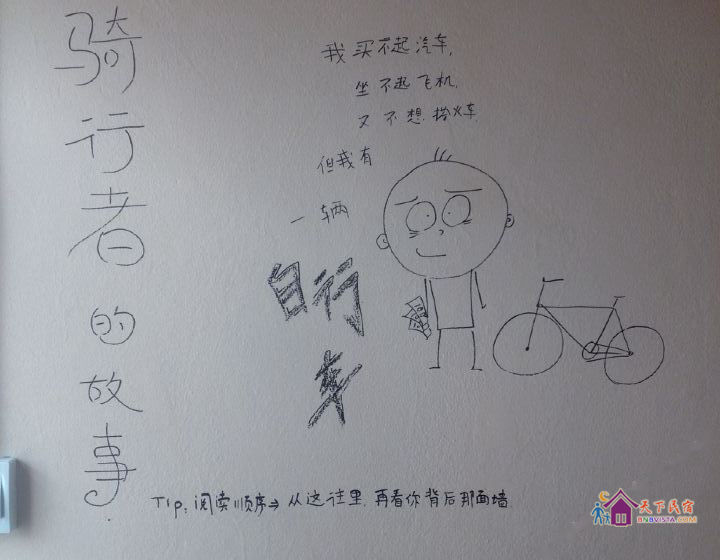 骑行者的故事
我买不起汽车,
坐不起飞机,
又不想搭火车
但我有
一辆
自行
车
Tip: 阅读顺序→从这往里,再看你背后那面墙
天下民宿
BNBVISTA.COM